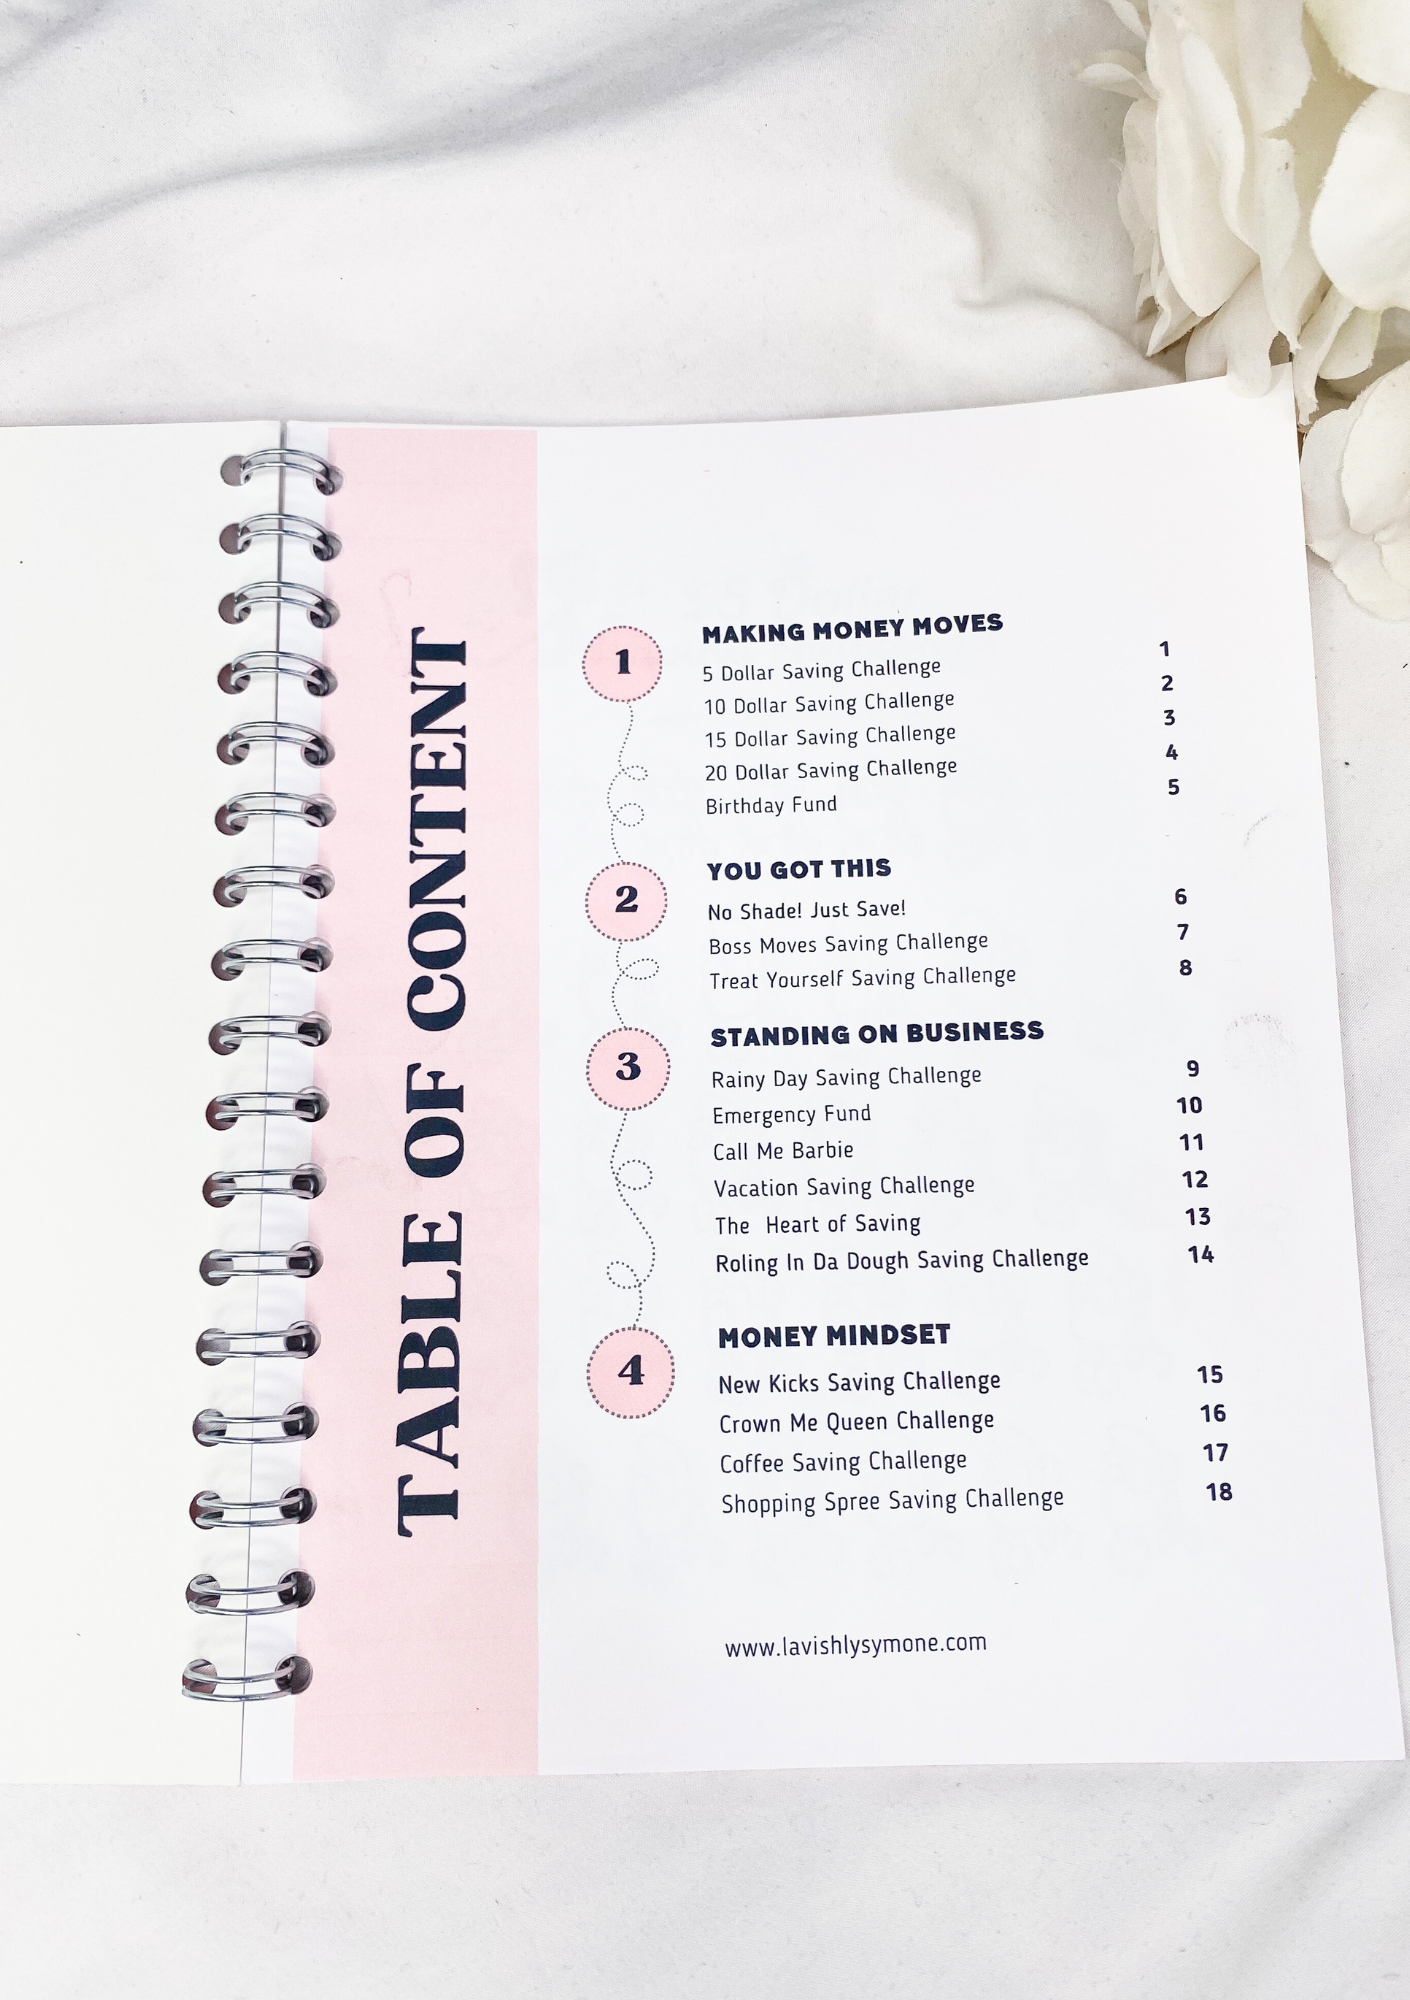 TABLE OF CONTENT
1
MAKING MONEY MOVES
5 Dollar Saving Challenge 1
10 Dollar Saving Challenge 2
15 Dollar Saving Challenge 3
20 Dollar Saving Challenge 4
Birthday Fund 5
2
YOU GOT THIS
No Shade! Just Save! 6
Boss Moves Saving Challenge 7
Treat Yourself Saving Challenge 8
3
STANDING ON BUSINESS
Rainy Day Saving Challenge 9
Emergency Fund 10
Call Me Barbie 11
Vacation Saving Challenge 12
The  Heart of Saving 13
Roling In Da Dough Saving Challenge 14
4
MONEY MINDSET
New Kicks Saving Challenge 15
Crown Me Queen Challenge 16
Coffee Saving Challenge 17
Shopping Spree Saving Challenge 18
www.lavishlysymone.com